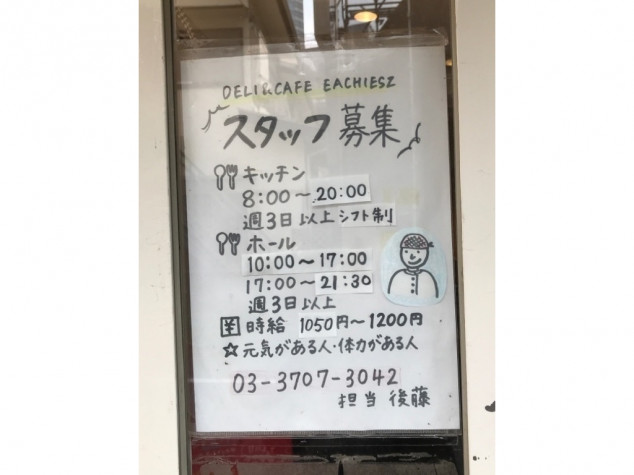 DELI&CAFE EACHIESZ
スタッフ募集
キッチン
8:00～20:00
週3日以上シフト制
ホール
10:00～17:00
17:00～21:30
週3日以上
¥時給 1050円～1200円
☆元気がある人・体力がある人
03-3707-3042
担当 後藤